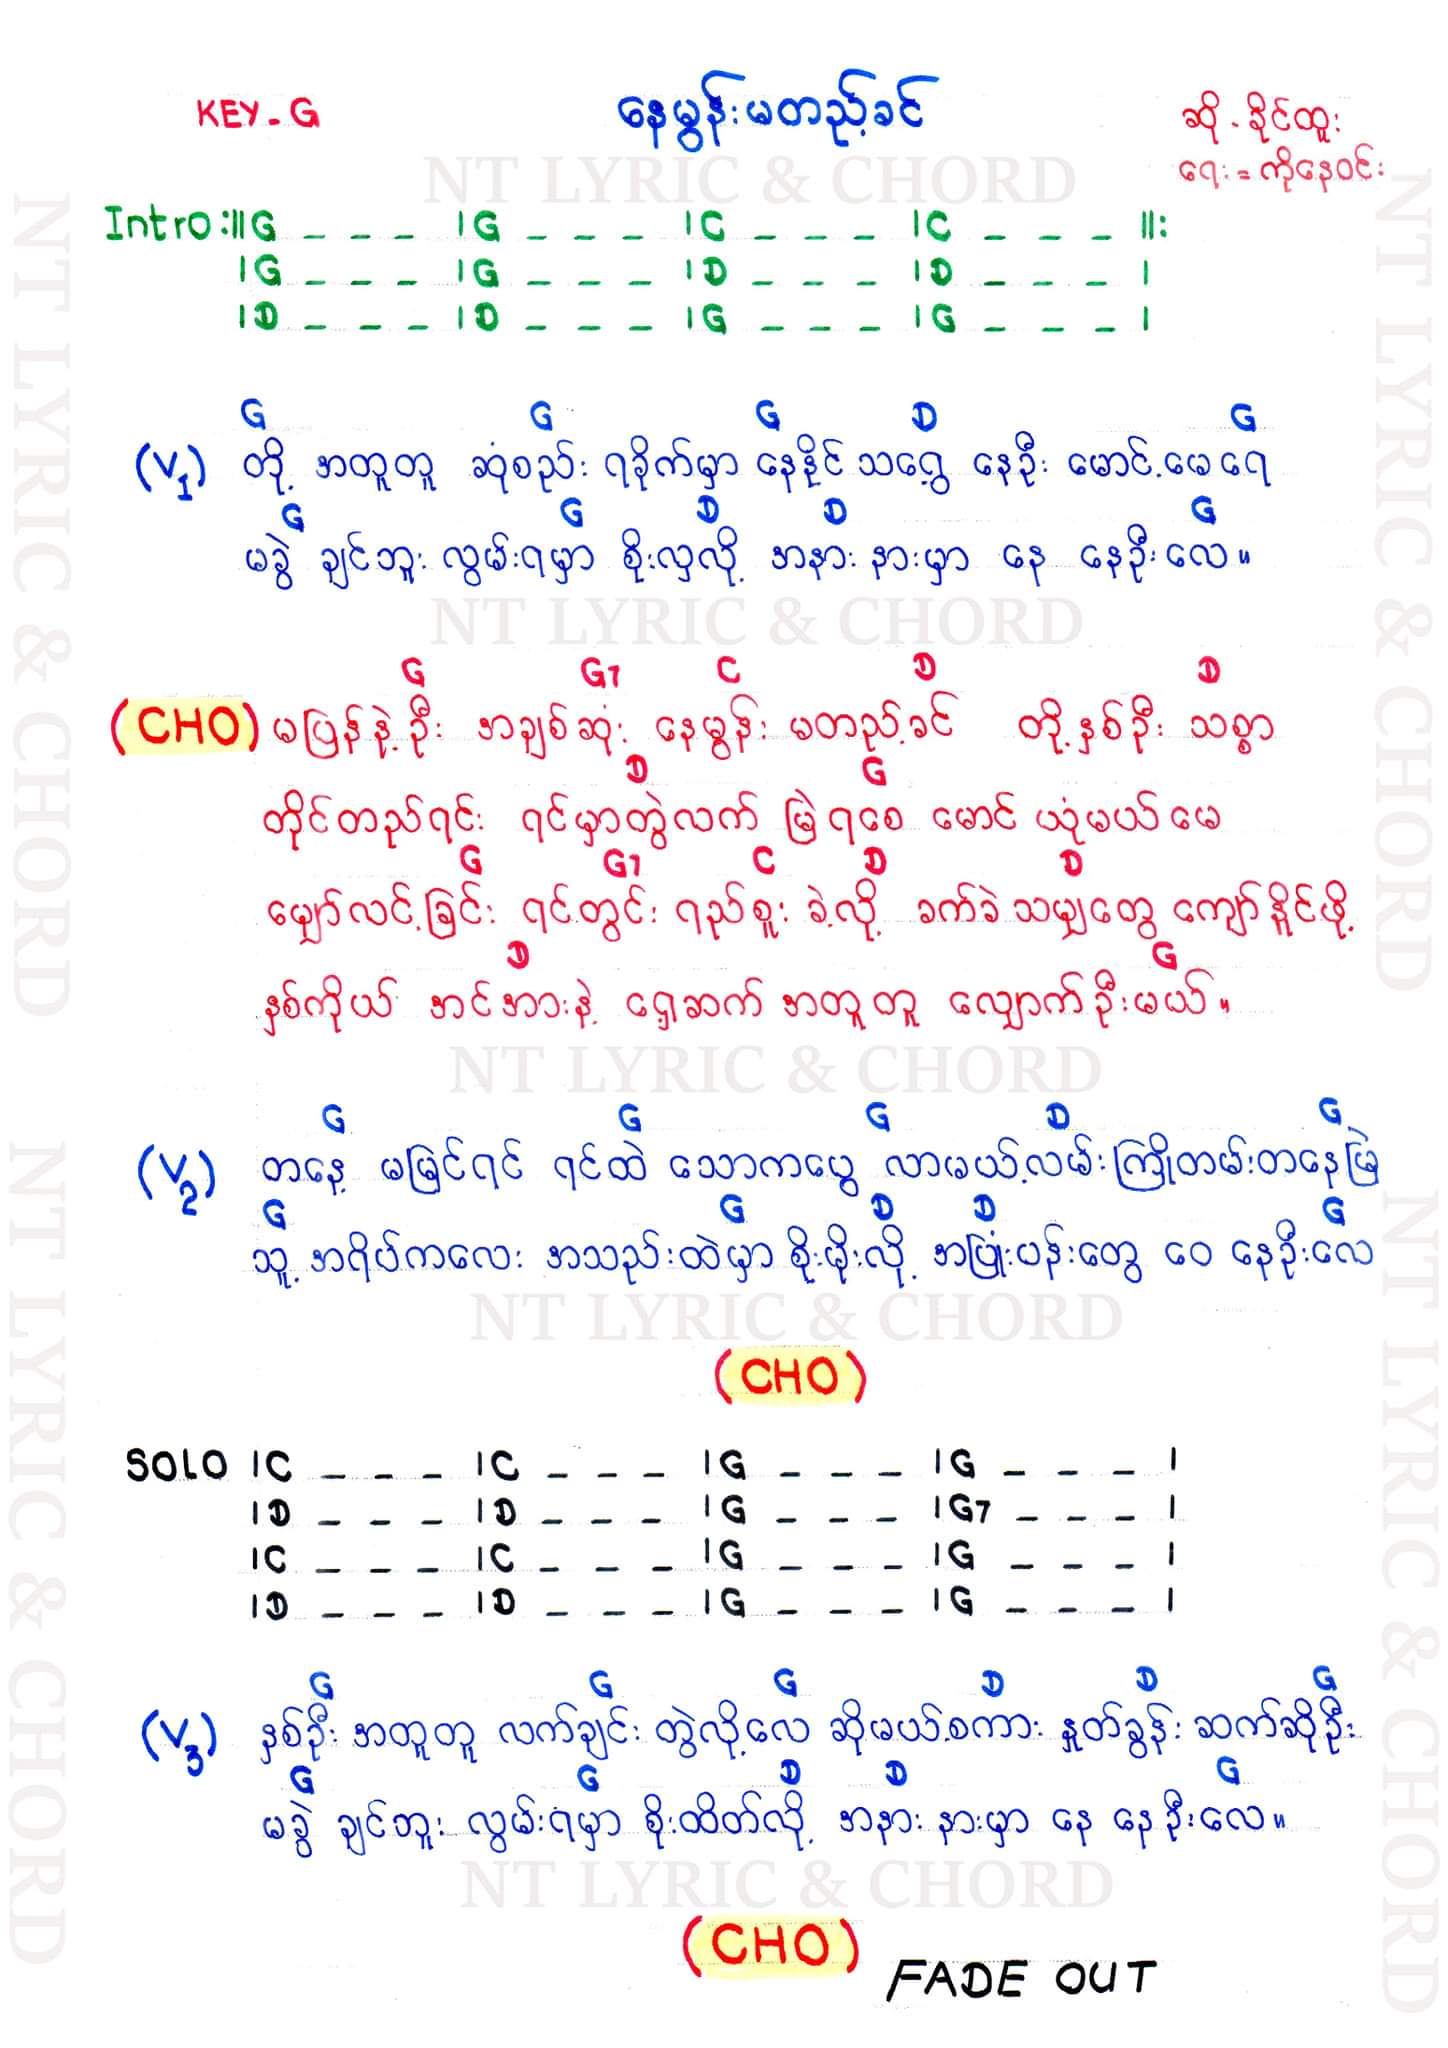 KEY - G
နေမွန်းမတည့်ခင်
ဆို - ခိုင်ထူး
ရေး = ကိုနေဝင်း
NT LYRIC & CHORD
Intro :||G _ _ _ |G _ _ _ |C _ _ _ |C _ _ _ ||:
|G _ _ _ |G _ _ _ |D _ _ _ |D _ _ _ |
|D _ _ _ |D _ _ _ |G _ _ _ |G _ _ _ |
G G G D G
(V1) တို့ အတူတူ ဆုံစည်း ရခိုက်မှာ နေနိုင်သရွေ့ နေဦး မောင့်မေရေ
G G D D G
မခွဲ ချင်ဘူး လွမ်းရမှာ စိုးလှလို့ အနား နားမှာ နေ နေဦးလေ။
NT LYRIC & CHORD
G G7 C D D
(CHO) မပြန်နဲ့ဦး အချစ်ဆုံး နေမွန်း မတည့်ခင် တို့နှစ်ဦး သစ္စာ
D G
တိုင်တည်ရင်း ရင်မှာတွဲလက် မြဲရစေ မောင် ယုံမယ်မေ
G G7 C D D
မျှော်လင့်ခြင်း ရင့်တွင်း ရည်စူး ခဲ့လို့ ခက်ခဲသမျှတွေ ကျော်နိူင်ဖို့
D G
နှစ်ကိုယ် အင်အားနဲ့ ရှေ့ဆက် အတူတူ လျှောက်ဦးမယ်။
NT LYRIC & CHORD
G G G D G
(V2) တနေ့ မမြင်ရင် ရင်ထဲ သောကပွေ လာမယ့်လမ်းကြိုတမ်းတနေမြဲ
G G D D G
သူ့အရိပ်ကလေး အသည်းထဲမှာ စိုးမိုးလို့ အပြုံးပန်းတွေ ဝေ နေဦးလေ
NT LYRIC & CHORD
(CHO)
SOLO |C _ _ _ |C _ _ _ |G _ _ _ |G _ _ _ |
|D _ _ _ |D _ _ _ |G _ _ _ |G7 _ _ _ |
|C _ _ _ |C _ _ _ |G _ _ _ |G _ _ _ |
|D _ _ _ |D _ _ _ |G _ _ _ |G _ _ _ |
G G G D D G
(V3) နှစ်ဦး အတူတူ လက်ချင်း တွဲလို့လေ ဆိုမယ့်စကား နှုတ်ခွန်း ဆက်ဆိုဦး
G G D D G
မခွဲ ချင်ဘူး လွမ်းရမှာ စိုးထိတ်လို့ အနား နားမှာ နေ နေဦးလေ။
NT LYRIC & CHORD
(CHO) FADE OUT
NT LYRIC & CHORD
NT LYRIC & CHORD
NT LYRIC & CHORD
NT LYRIC & CHORD